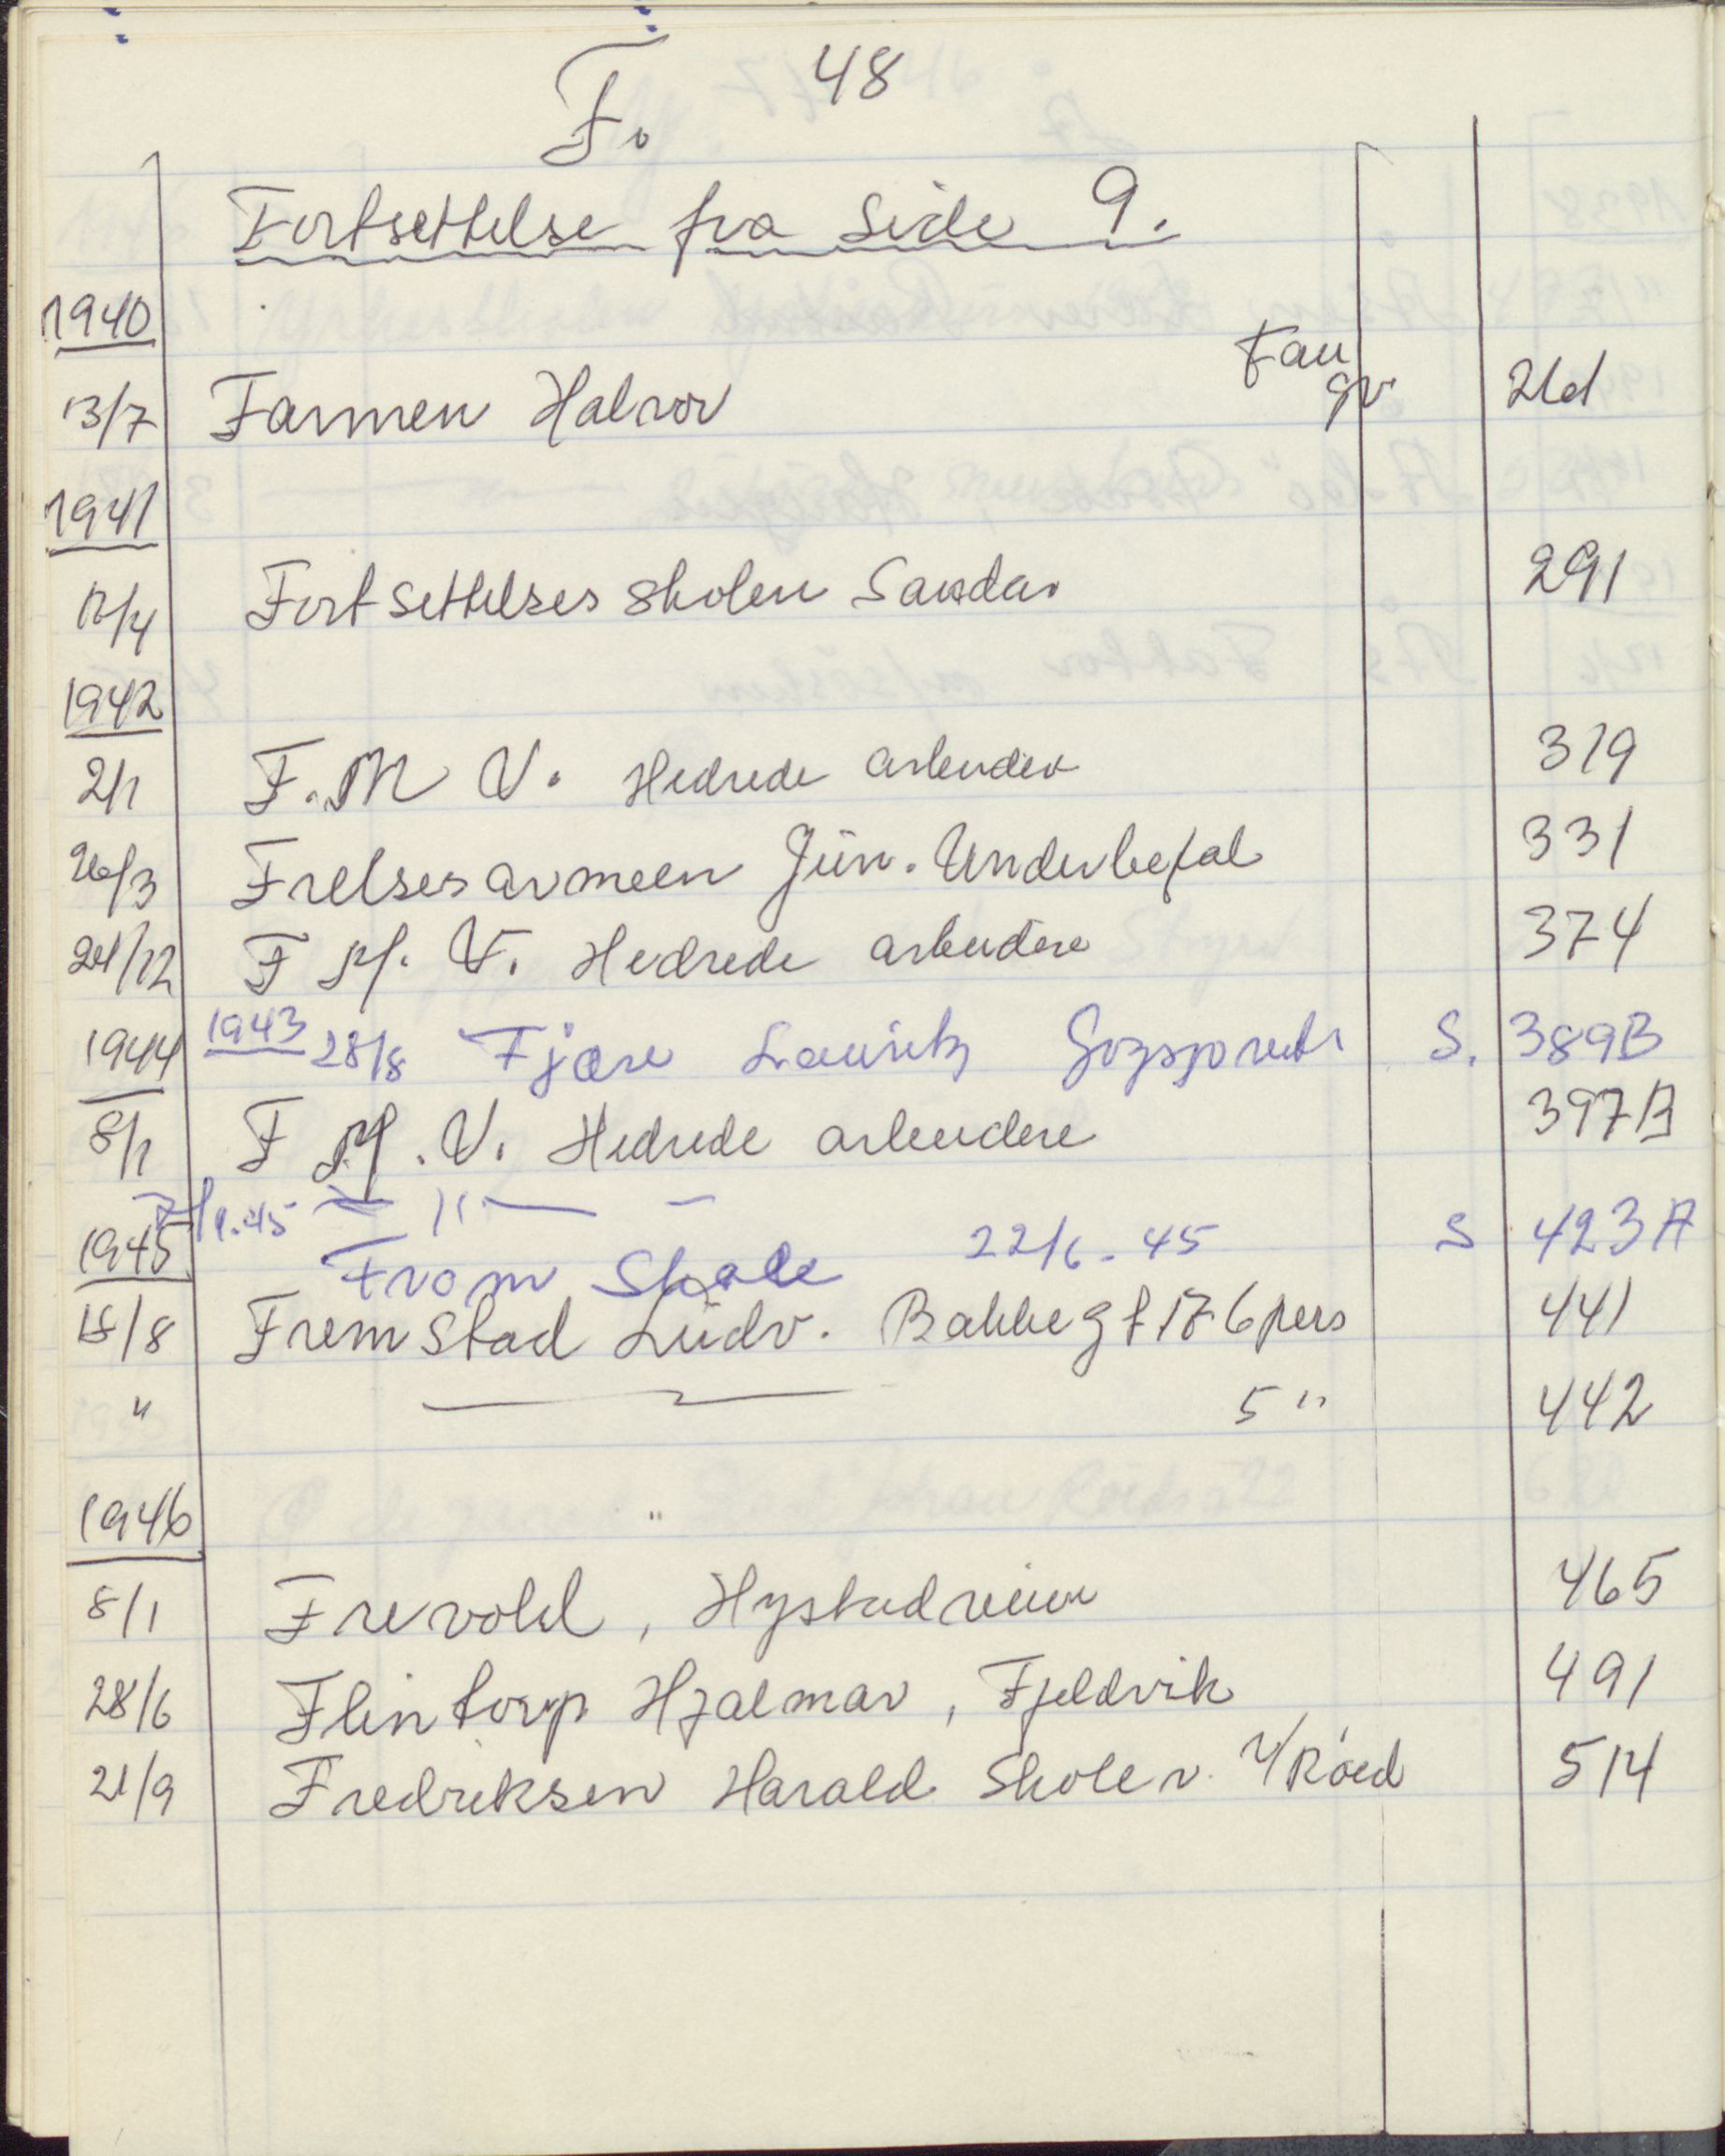 48
F.
Fortsettelse fra Side 9.
1940
13/7 Farmen Halvor
1941
12/4 Fortsettelses skolen Sandar 291
1942
2/1 F.M V. Hedrede arbeider 319
26/3 Frelsesarmeen Jün. Underbefal 331
24/12 F M. V. Hedrede arbeidere 374
1944 1943 28/8 Fjære Lauritz S. 389B
8/1 F M. V. Hedrede arbeidere 397B
1945 7/1.45 — " — — S 423A
From Skole 22/6.45
18/8 Fremstad Lüdv. Bakkegt 17 6 pers 441
" —— " —— 5 " 442
1946
8/1 Frevold, Hystadveien 465
28/6 Flintorp Hjalmar, Fjeldvik 491
21/9 Fredriksen Harald Skole v. 514